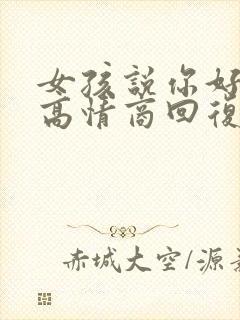 女孩説你好
高情商回復
赤城大空/源